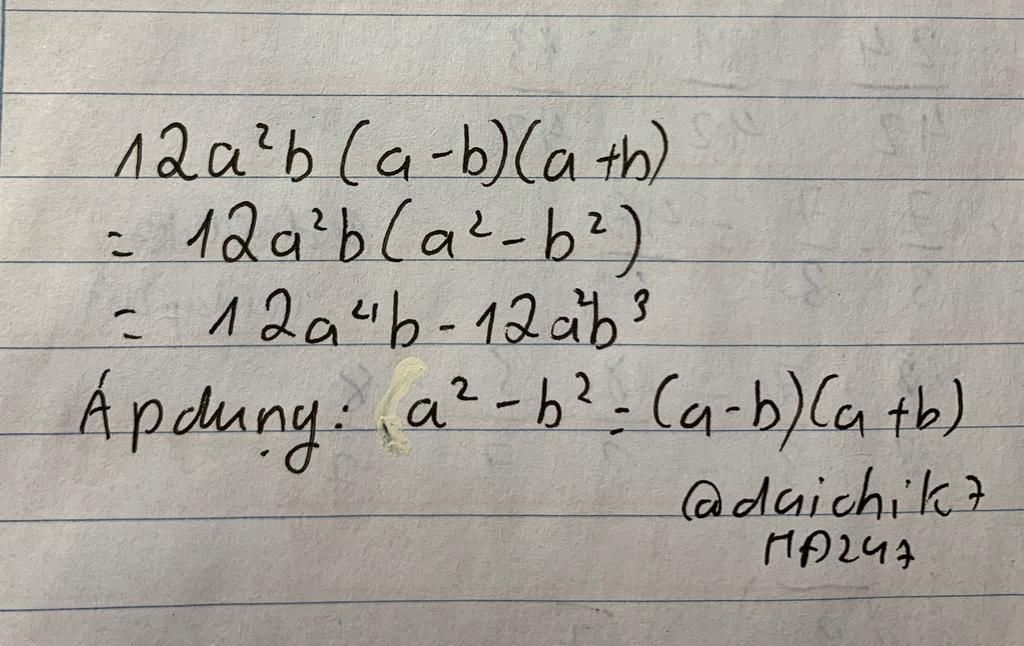 12a²b(a-b)(a+b)
= 12a²b(a²-b²)
= 12a⁴b-12a²b³
Áp dụng: (a²-b²=(a-b)(a+b)
@daichik7
HD247